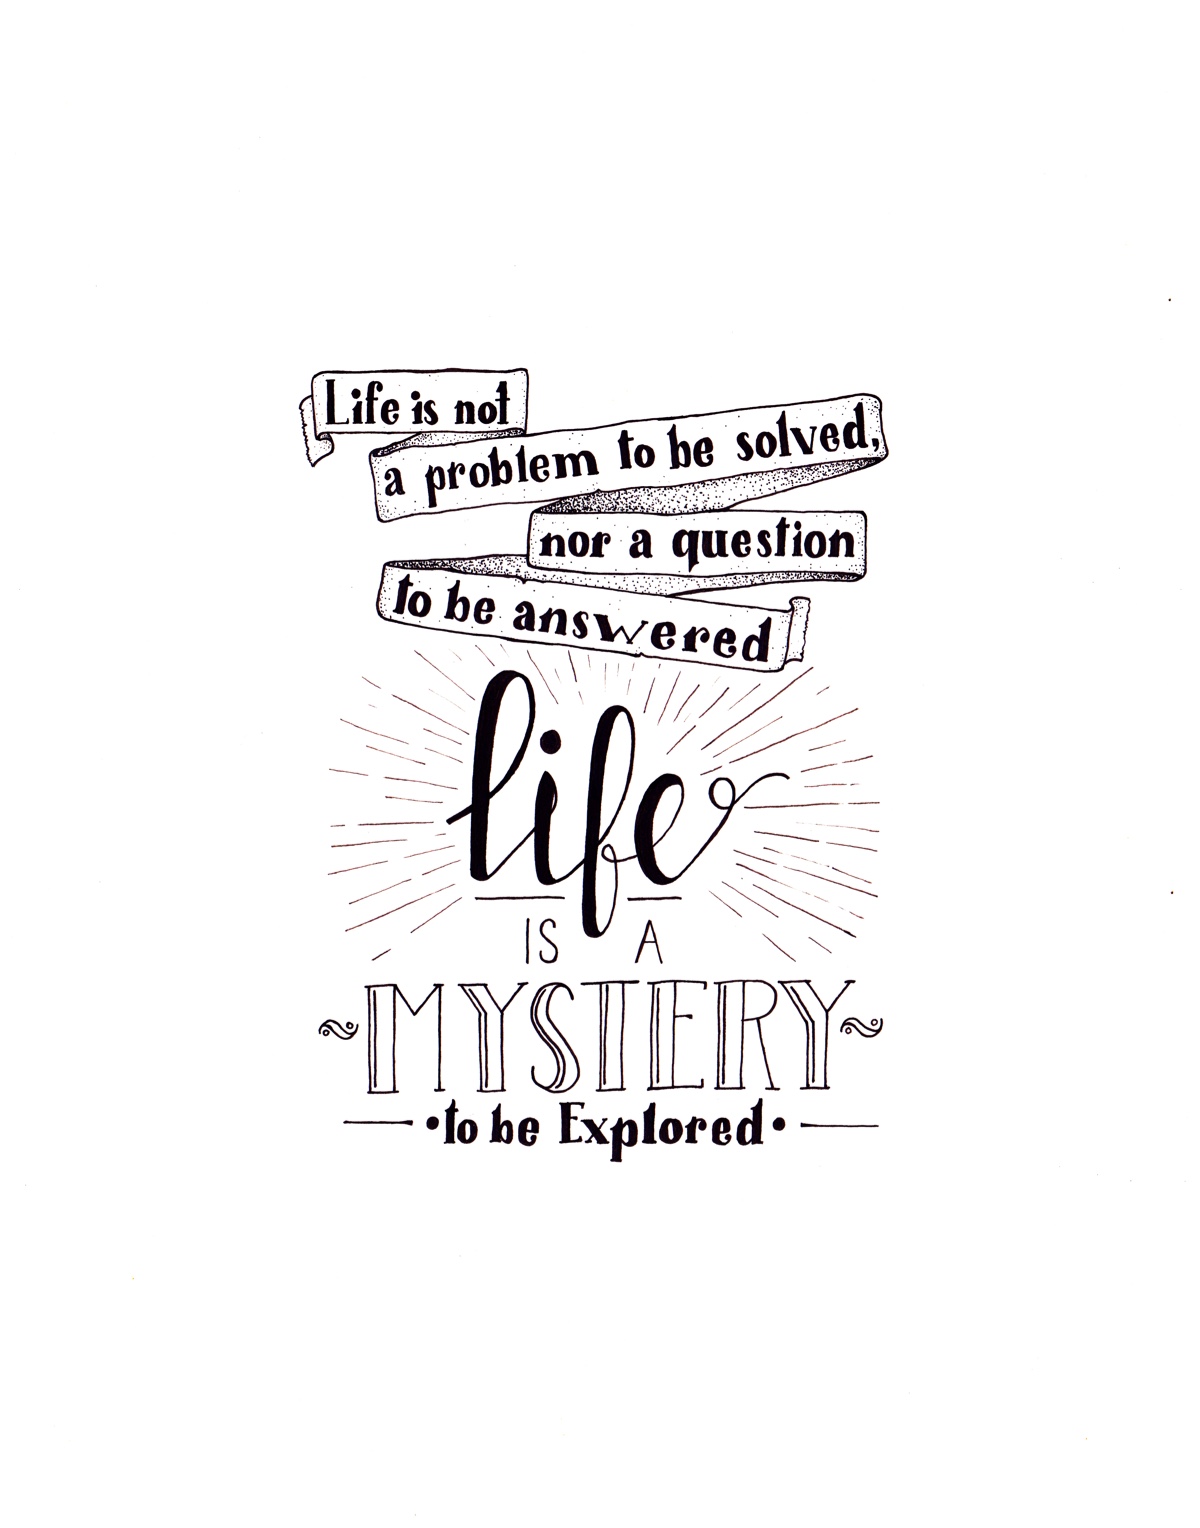 Life is not
a problem to be solved,
nor a question
to be answered
life
IS A
MYSTERY
•to be Explored•